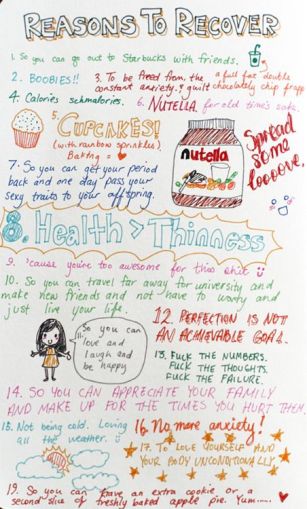 REASONS TO RECOVER
1. So you can go out to Starbucks with friends.
2. BOOBIES!!
3. To be freed from the
constant anxiety & guilt
a full fat double
chocolatey chip frapp
4. Calories schmalories.
6. NUTELLA for old time's sake.
5.
CUPCAKES!
(with rainbow sprinkles)
Baking = ♥
nutella
Spread
some
looove.
7. So you can get your period
back and one day pass your
sexy traits to your offspring.
8. Health > Thinness
9. 'cause you're too awesome for this shit
10. So you can travel far away for university and
make new friends and not have to worry and
just live your life.
11.
So you can
love and
laugh and
be happy
12. PERFECTION IS NOT
AN ACHIEVABLE GOAL.
13. FUCK THE NUMBERS.
FUCK THE THOUGHTS.
FUCK THE FAILURE.
14. SO YOU CAN APPRECIATE YOUR FAMILY
AND MAKE UP FOR THE TIMES YOU HURT THEM.
15. Not being cold. Loving
all the weather.
16. No more anxiety!
17. TO LOVE YOURSELF AND
YOUR BODY UNCONDITIONALLY
19. So you can have an extra cookie or a
second slice of freshly baked apple pie. Yum.....